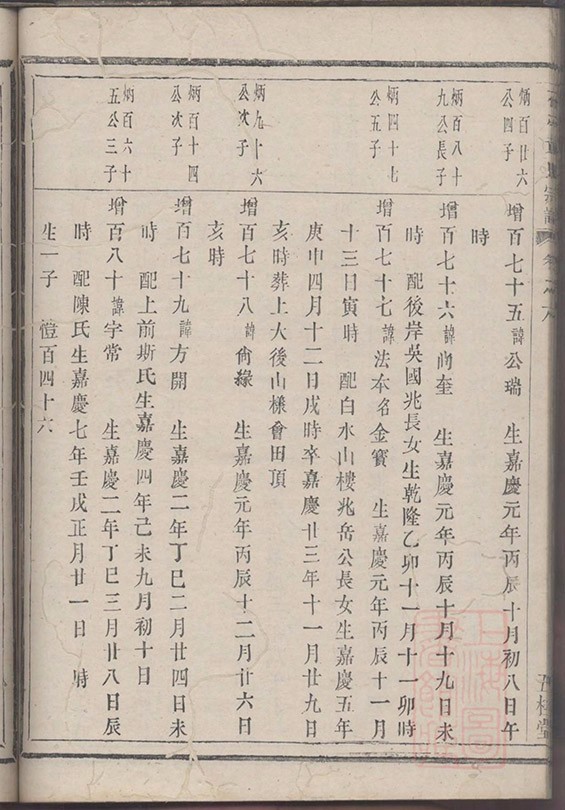 炳百廿六
公四子
增百七十五諱公瑞 生嘉慶元年丙辰十月初八日午
時
炳百八十
九公長子
增百七十六諱尚奎 生嘉慶元年丙辰十月十九日未
時 配後岸吳國兆長女生乾隆乙卯十一月十一卯時
炳四十七
公五子
增百七十七諱法本名金寳 生嘉慶元年丙辰十一月
十三日寅時 配白水山樓兆岳公長女生嘉慶五年
庚申四月十二日戌時卒嘉慶廿三年十一月廿九日
亥時葬上大後山様會田頂
炳九十六
公次子
增百七十八諱尙緣 生嘉慶元年丙辰十二月廿六日
亥時
炳百十四
公次子
增百七十九諱方開 生嘉慶二年丁巳二月廿四日未
時 配上前斯氏生嘉慶四年己未九月初十日
炳百六十
五公三子
增百八十諱宇常 生嘉慶二年丁巳三月廿八日辰
時 配陳氏生嘉慶七年壬戌正月廿一日 時
生一子 愷百四十六